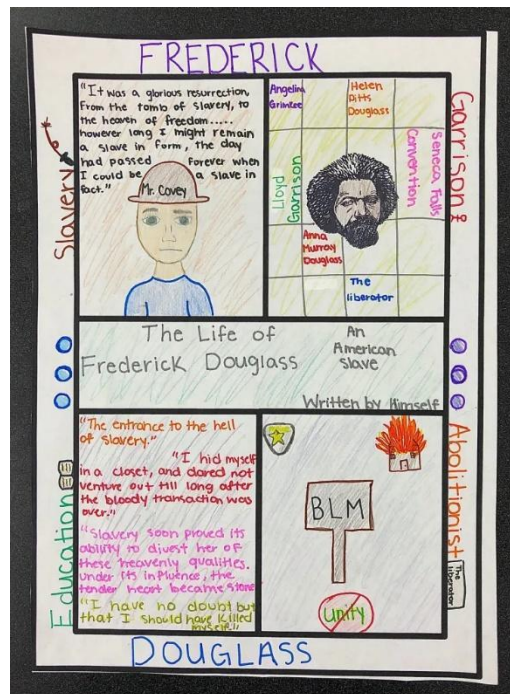 FREDERICK
"It was a glorious resurrection,
From the tomb of slavery, to
the heaven of freedom.....
however long I might remain
a slave in form, the day
had passed forever when
I could be a slave in
fact."
Mr. Covey
Slavery
Angelina
Grimkee
Helen
Pitts
Douglass
Lloyd
Garrison
Convention
Seneca Falls
Anna
Murray
Douglass
The
liberator
Garrison
The Life of
Frederick Douglass
An
American
Slave
Written by Himself
"The entrance to the hell
of slavery."
"I hid myself
in a closet, and dared not
venture out till long after
the bloody transaction was
over."
"Slavery soon proved its
ability to divest her of
these heavenly qualities.
Under its influence, the
tender heart became stone
"I have no doubt but
that I should have killed
myself."
Education
BLM
Unity
Abolitionist
The
liberator
DOUGLASS